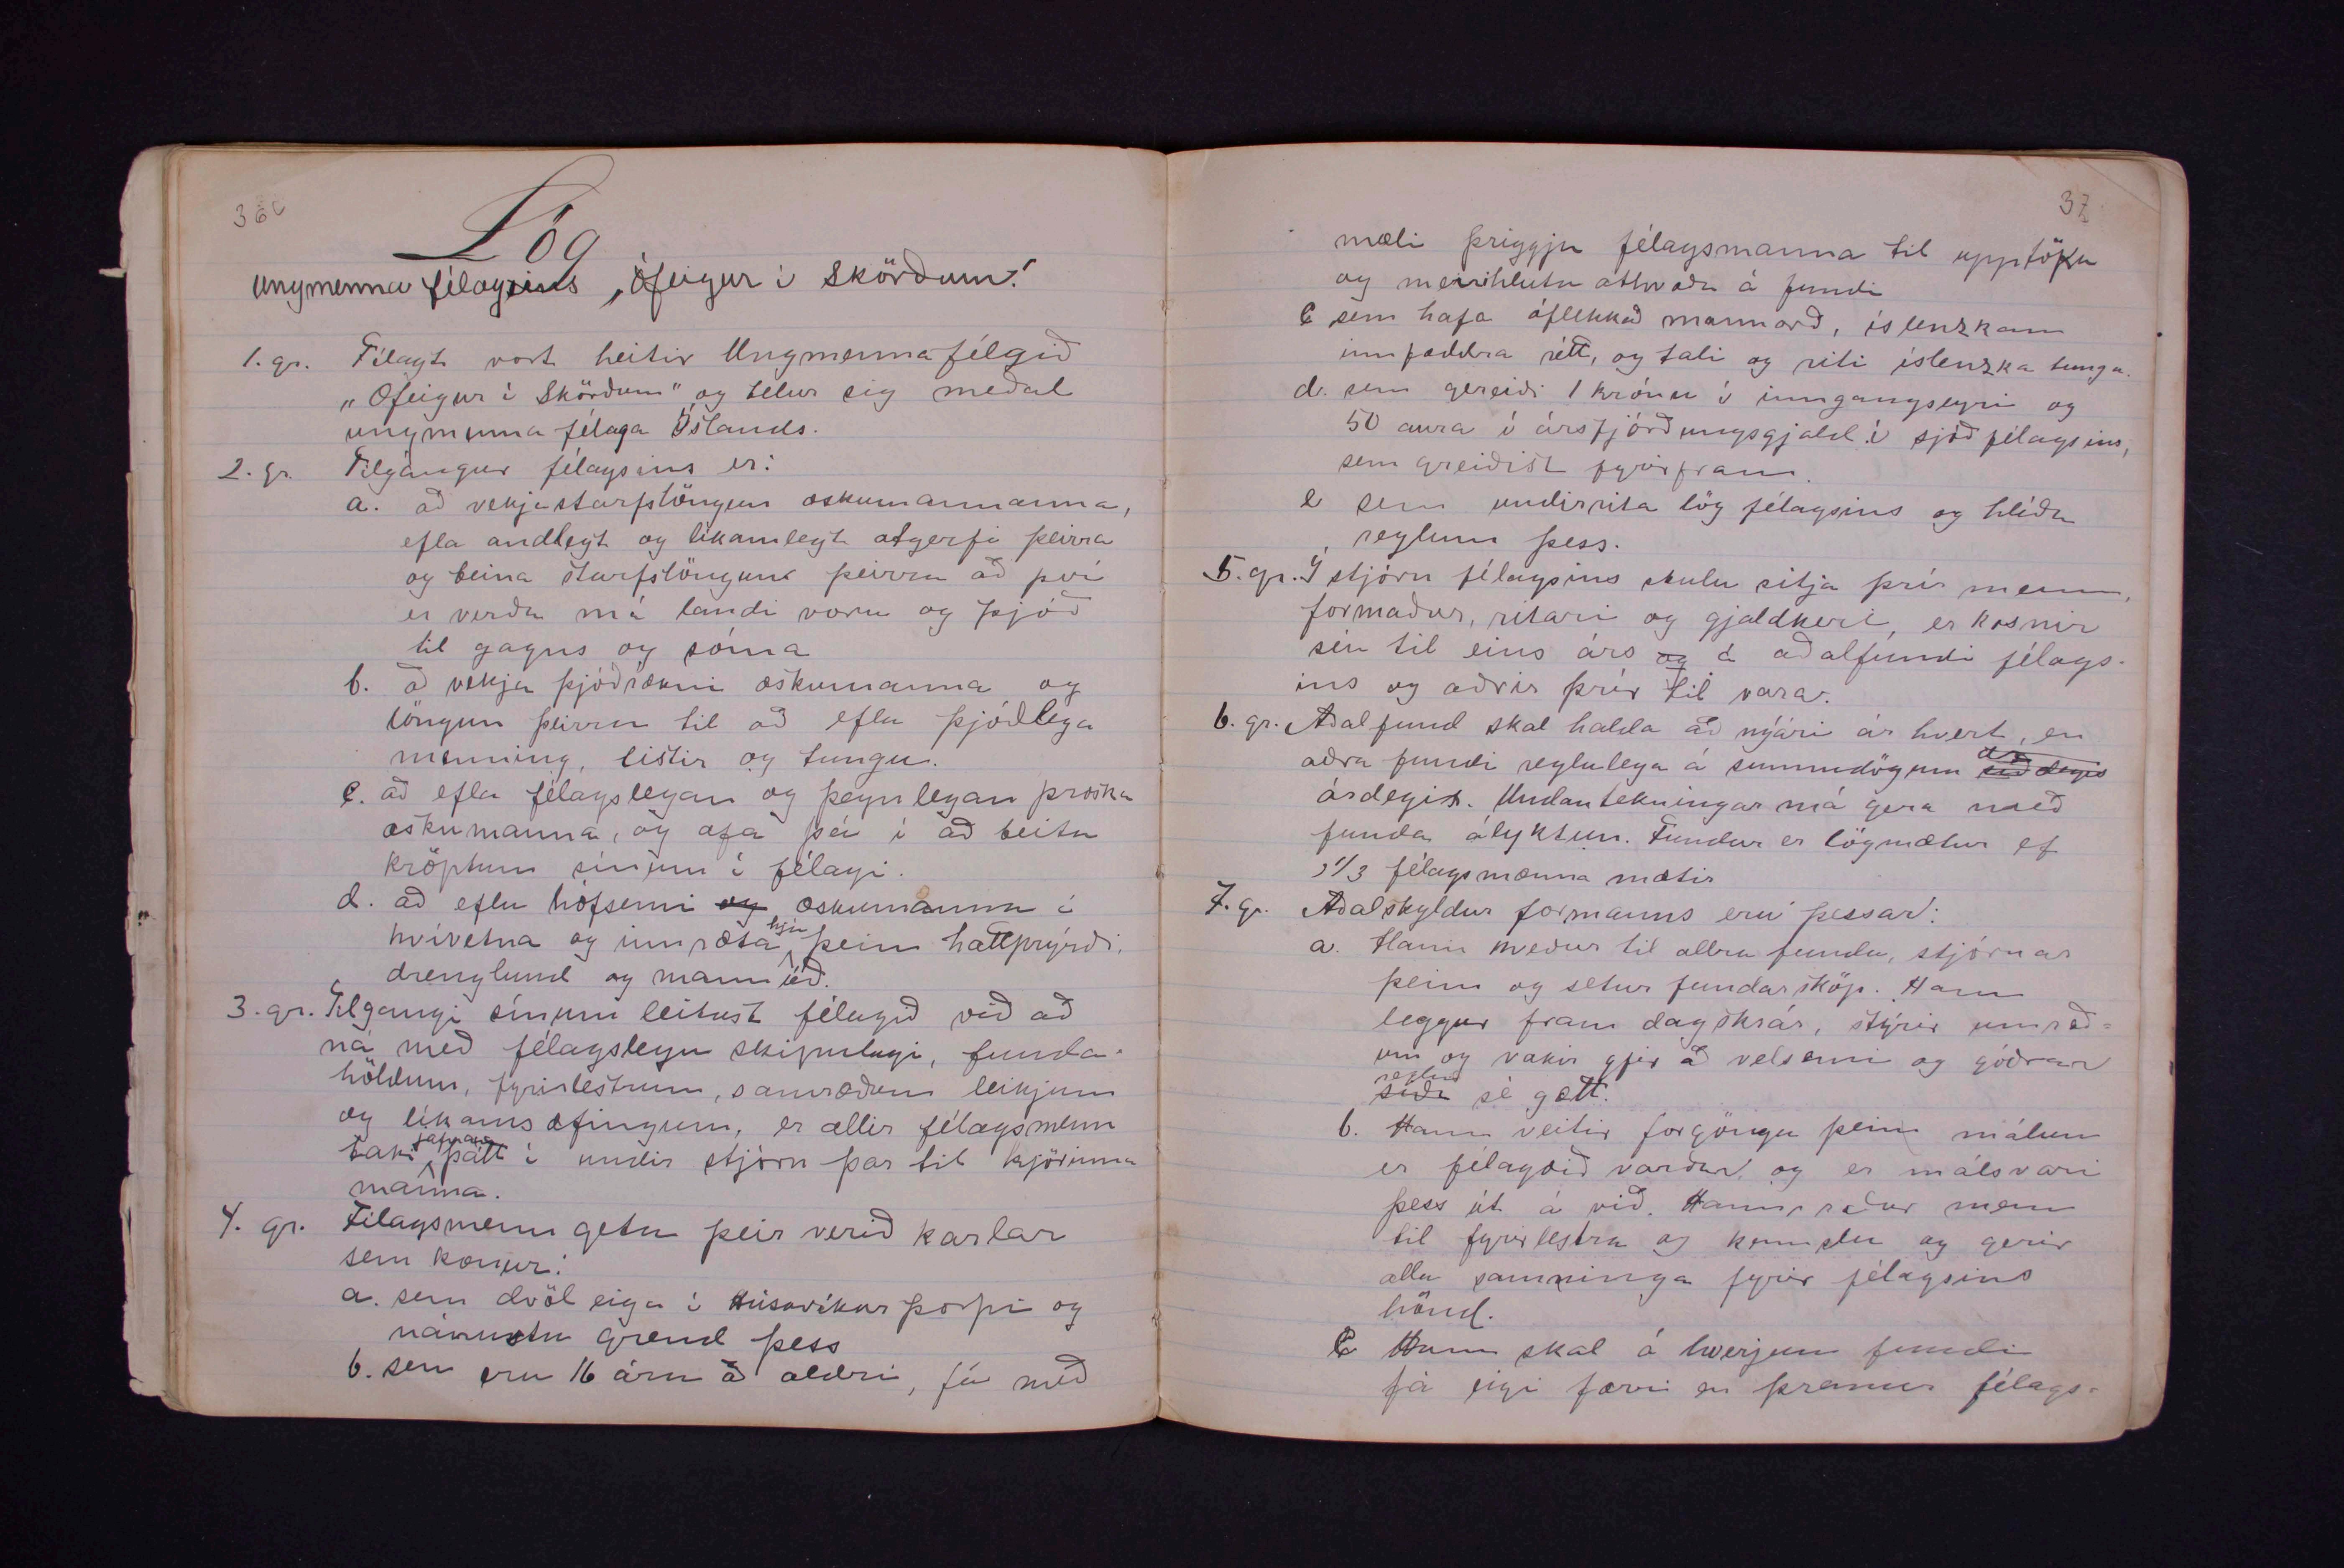 36
Lög
Ungmennafélagsins „Ófeigur í Skörðum."
1. gr. Félagt vort heitir Ungmennafélgið
„Ófeigur í Skörðum" og telur sig meðal
ungmenna félaga Íslands.
2. gr. Tilgangur félagsins er:
a. að vekja starfslöngun æskumannanna,
efla andlegt og líkamlegt atgerfi þeirra
og beina starfslöngun þeirra að því
er verða má landi voru og þjóð
til gagns og sóma
b. að vekja þjóðrækni æskumanna og
löngun þeirra til að efla þjóðlega
menning, listir og tungu.
c. að efla félagslegan og þegnlegan þroska
æskumanna, og æfa þá í að beita
kröptum sínum í félagi.
d. að efla hófsemi og æskumanna í
hvívetna og innræta hjá þeim háttprýði,
drenglund og mannúð.
3. gr. Tilgangi sínum leitast félagið við að
ná með félagslegu skipulagi, funda-
höldum, fyrirlestrum, samræðum leikjum
og líkamsæfingum, er allir félagsmenn
taki jafnan þátt í undir stjórn þar til kjörinna
manna.
4. gr. Félagsmenn geta þeir verið karlar
sem konur:
a. sem dvöl eiga í Húsavíkurþorpi og
návustu grend þess
b. sem eru 16 ára að aldri, fá með
37
mæli þriggju félagsmanna til upptöku
og meirihluta atkvæða á fundi
c sem hafa óflekkað mannorð, íslenzkann
innfæddra rétt, og tali og riti íslenzka tungu.
d. sem gereiði 1 krónu í inngangseyri og
50 aura í ársfjórðungsgjald í sjóð félagsins,
sem greiðist fyrirfram.
e sem undirrita lög félagsins og hlíða
reglum þess.
5. gr. Í stjórn félagsins skulu sitja þrír menn,
formaður, ritari og gjaldkeri, er kosnir
séu til eins árs og á aðalfundi félags-
ins og aðrir þrír til vara.
6. gr. Aðalfund skal halda að nýári ár hvert, en
aðra fundi reglulega á sunnudögum síðdegis
árdegis. Undantekningar má gera með
funda ályktun. Fundur er lögmætur ef
1/3 félagsmanna mætir
7. gr. Aðalskyldur formanns eru þessar:
a. Hann kveður til allra funda, stjórnar
þeim og setur fundarsköp. Hann
leggur fram dagskrár, stýrir umræð-
um og vakir yfir að velsemi og góðrar
reglu
siða sé gætt.
b. Hann veitir forgöngu þeim málum
er félagið varðar, og er málsvari
þess út á við. Hann ræður menn
til fyrirlestra og kennslu og gerir
alla samninga fyrir félagsins
hönd.
c Hann skal á hverjum fundi
fá eigi færri en þremur félags-